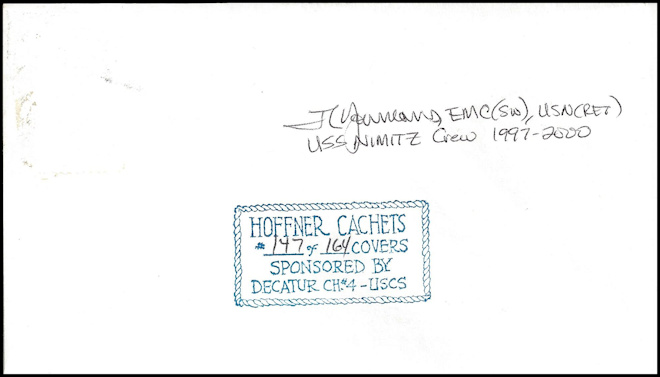 EMC(SW), USN(RET)
USS NIMITZ Crew 1997-2000
HOFFNER CACHETS
# 147 of 164 COVERS
SPONSORED BY
DECATUR CH#4-USCS